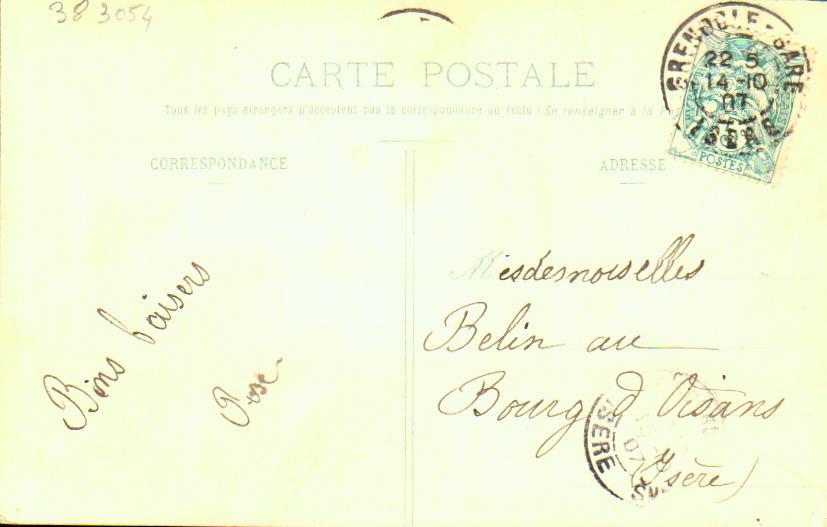 38 3054
CARTE POSTALE
Tous les pays étrangers n'acceptent pas la correspondance au recto (Se renseigner à la
CORRESPONDANCE
ADRESSE
GRENOBLE-GARE
22 5
14-10
07
ISERE
POSTES
Bons baisers
Rose
Mesdesmoiselles
Belin au
Bourg d'Oisans
(Isère)
ISERE
07